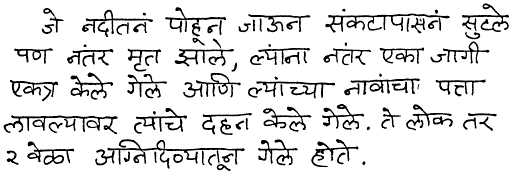 जे नदीतनं पोहून जाऊन संकटापासनं सुटले
पण नंतर मृत झाले, त्यांना नंतर एका जागी
एकत्र केले गेले आणि त्यांच्या नावांचा पत्ता
लावल्यावर त्यांचे दहन केले गेले. ते लोक तर
२ वेळा अग्निदिव्यातून गेले होते.